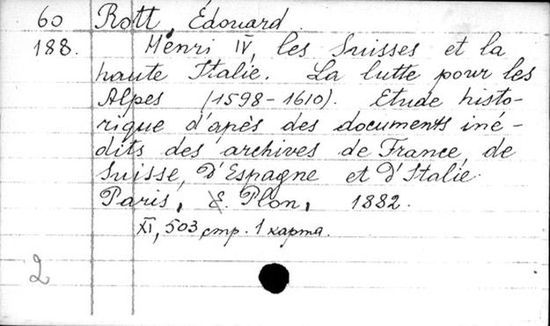 60 Rott, Édouard
188. Henri IV, les Suisses et la
haute Italie. La lutte pour les
Alpes (1598-1610). Etude histo-
rique d'après des documents iné-
dits des archives de France, de
Suisse, d'Espagne et d'Italie.
Paris, E. Plon, 1882.
XI, 503 стр. 1 карта.
2